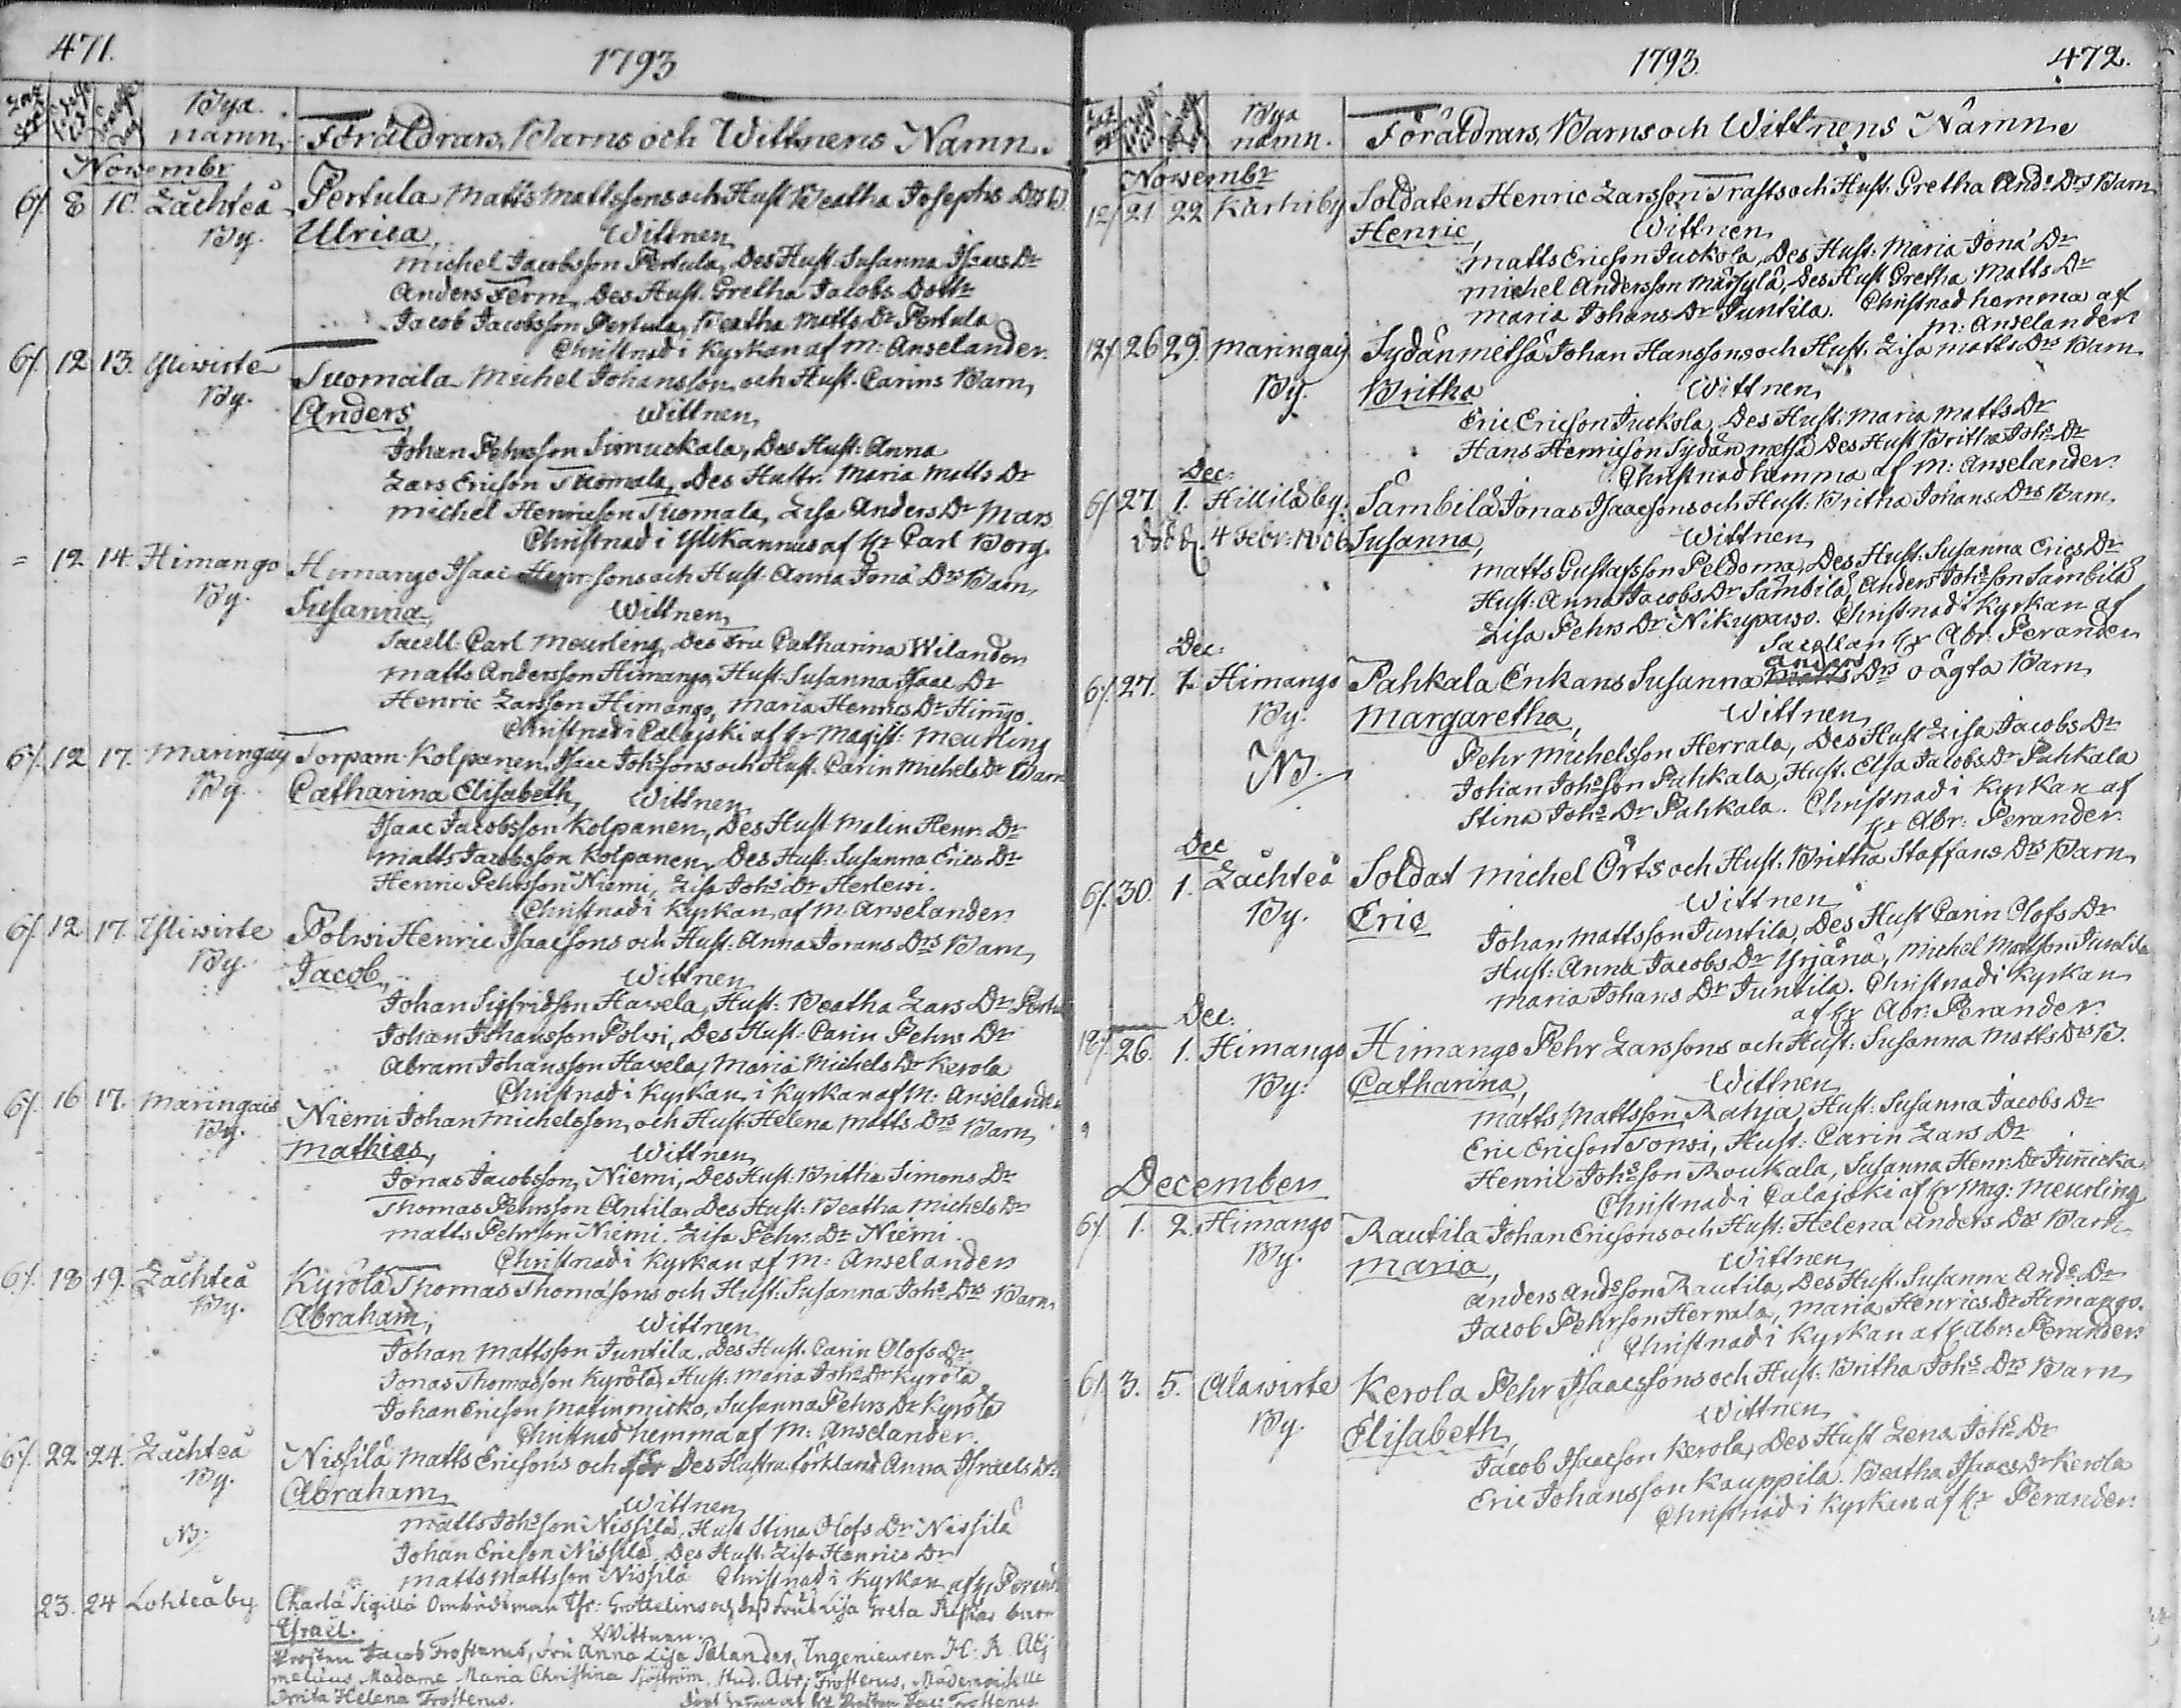 471.
1793
Bya namn. Föräldrars, Barns och Wittnens Namn.
Novembr
6/ 8 10. Låchteå By. Pertula Matts Mattssons och Hust Beatha Josephs Drs B.
Ulrica, Wittnen
Michel Jacobsson Pertula, Des Hust. Susanna Isaacs Dr
Anders Ferm, Des Hust. Gretha Jacobs Dottr
Jacob Jacobsson Pertula, Beatha Matts Dr Pertula
Christnad i Kyrkan af M: Anselander.
6/. 12 13. Yliwirte By. Tuomala Michel Johansson och Hust. Carins Barn,
Anders, Wittnen,
Johan Pehrsson Simuckala, Des Hust: Anna
Lars Ericson Tuomala, Des Hustr: Maria Matts Dr
Michel Henricson Tuomala, Lisa Anders Dr Mars
Christnad i Ylikannus af Hr Carl Borg.
= 12 14. Himango By. Himango Isaac Henr:sons och Hust. Anna Jona Drs Barn,
Susanna, Wittnen,
Sacell. Carl Meurling, Des Fru Catharina Wilander
Matts Andersson Himango, Hust: Susanna Isaac Dr
Henric Larsson Himango, Maria Henrics Dr Himgo.
Christnad i Calajoki af Hr Magist: Meurling
6/. 12 17. Maringais By. Torpam Kolpanen, Isaac Johssons och Hust. Carin Michels Dr Barn
Catharina Elisabeth, Wittnen
Isaac Jacobsson Kolpanen, Des Hust. Malin Henr. Dr
Matts Jacobsson Kolpanen, Des Hust: Susanna Erics Dr
Henric Pehrsson Niemi, Lisa Johs Dr Herlewi.
Christnad i Kyrkan af M. Anselander
6/. 12 17. Yliwirte By. Polwi Henric Isaacsons och Hust: Anna Jorans Drs Barn,
Jacob, Wittnen
Johan Sigfridson Hawela, Hust: Beatha Lars Dr Pertu
Johan Johansson Polwi, Des Hust: Carin Pehrs Dr
Abram Johansson Hawela, Maria Michels Dr Kerola
Christnad i Kyrkan i Kyrkan af M: Anselander
6/. 16 17. Maringais By. Niemi Johan Michelsson, och Hust. Helena Matts Drs Barn
Mathias, Wittnen
Jonas Jacobsson, Niemi, Des Hust: Britha Simons Dr
Thomas Pehrsson Antila, Des Hust: Beatha Michels Dr
Matts Pehrson Niemi. Lisa Pehr: Dr Niemi.
Christnad i Kyrkan af M: Anselander
6/. 18 19. Låchteå By. Kyrölä Thomas Thomasons och Hust: Susanna Johs Drs Barn
Abraham, Wittnen
Johan Mattsson Juntila, Des Hust. Carin Olofs Dr
Jonas Thomasson Kyrölä, Hust: Maria Johs Dr Kyrölä
Johan Ericson Matinmicko, Susanna Pehrs Dr Kyrölä
Christnad hemma af M: Anselander.
6/. 22 24. Låchteå By. Nissilä Matts Ericsons och Des Hustru förkland Anna Israels Dr
Abraham, Wittnen
NB: Matts Johsson Nissilä, Hust Stina Olofs Dr Nissilä
Johan Ericson Nissilä, Des Hust: Lisa Henrics Dr
Matts Mattsson Nissilä Christnad i Kyrkan af Hr Perand
23. 24 Lohteåby Charta Sigillä Ombudsman Hr: Grottelins och dess Fru Lisa Greta Barn
Israël. Wittnen.
Prosten Jacob Frosterus, Fru Anna Lisa Palander, Ingenieuren H. R. Abj
melæus, Madame Maria Christina Sjöström, Stud. Abr: Frosterus, Mademoiselle
Brita Helena Frosterus.
1793.
472.
Bya namn. Föräldrars, Barns och Wittnens Namn.
Novembr
12/ 21 22 Karhi by Soldaten Henric Larsson Trasts och Hust: Gretha Ands Drs Barn
Henric, Wittnen
Matts Ericson Juckola, Des Hust: Maria Jona Dr
Michel Andersson Märsylä, Des Hust Gretha Matts Dr
Maria Johans Dr Juntila. Christnad hemma af
M: Anselander
12/ 26 29. Maringais By. Sydänmetsä Johan Hanssons och Hust. Lisa Matts Drs Barn
Britha Wittnen
Eric Ericson Juckola, Des Hust: Maria Matts Dr
Hans Henricson Sydänmetsä Des Hust Britha Johs Dr
Christnad hemma af M: Anselander.
Dec:
6/ 27. 1. Hillilä by. Sämbilä Jonas Isaacsons och Hust: Britha Johans Drs Barn
död d. 4 Febr: 1806 Susanna, Wittnen
Matts Gustafsson Peldoma, Des Hust: Susanna Erics Dr
Hust: Anna Jacobs Dr Sämbilä, Anders Johsson Sämbilä
Lisa Pehrs Dr Nikupawo. Christnad i Kyrkan af
Sacellan Hr Abr: Perander
Dec:
6/. 27. 1. Himango By. Pahkala Enkans Susanna Anders Drs oägta Barn
Margaretha, Wittnen
NB. Pehr Michelsson Herrala, Des Hust Lisa Jacobs Dr
Johan Johsson Pahkala, Hust. Elsa Jacobs Dr Pahkala
Stina Johs Dr Pahkala. Christnad i Kyrkan af
Hr Abr: Perander.
Dec
6/. 30. 1. Låchteå By. Soldat Michel Örts och Hust: Britha Staffans Drs Barn
Eric Wittnen
Johan Mattsson Juntila, Des Hust Carin Olofs Dr
Hust: Anna Jacobs Dr Yrjänä, Michel Mattson Juntila
Maria Johans Dr Juntila. Christnad i Kyrkan
af Hr Abr: Perander.
Dec:
18/. 26. 1. Himango By: Himango Pehr Larssons och Hust: Susanna Matts Drs B.
Catharina, Wittnen
Matts Mattsson Rahja, Hust: Susanna Jacobs Dr
Eric Ericson Torwi, Hust: Carin Lars Dr
Henric Johsson Roukala, Susanna Henr: Dr Junicka.
Christnad i Calajoki af Hr Mag: Meurling
December
6/ 1. 2. Himango By. Rautila Johan Ericsons och Hust: Helena Anders Drs Barn
Maria, Wittnen
Anders Andsson Rautila, Des Hust. Susanna Ands Dr
Jacob Pehrson Herrala, Maria Henrics Dr Himango.
Christnad i Kyrkan af Hr Abr: Perander.
6/ 3. 5. Alawirte By. Kerola Pehr Isaacssons och Hust: Britha Johs Drs Barn
Elisabeth, Wittnen
Jacob Isaacson Kerola, Des Hust Lena Johs Dr
Eric Johansson Kauppila. Beatha Isaacs Dr Kerola
Christnad i Kyrkan af Hr Perander.